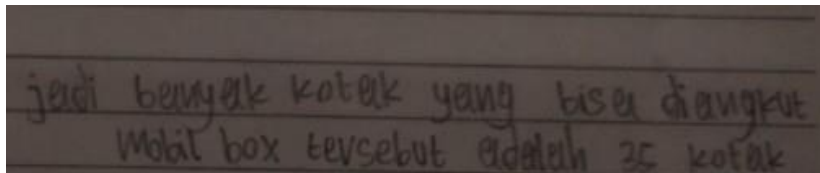 jadi banyak kotak yang bisa diangkut
mobil box tersebut adalah 35 kotak